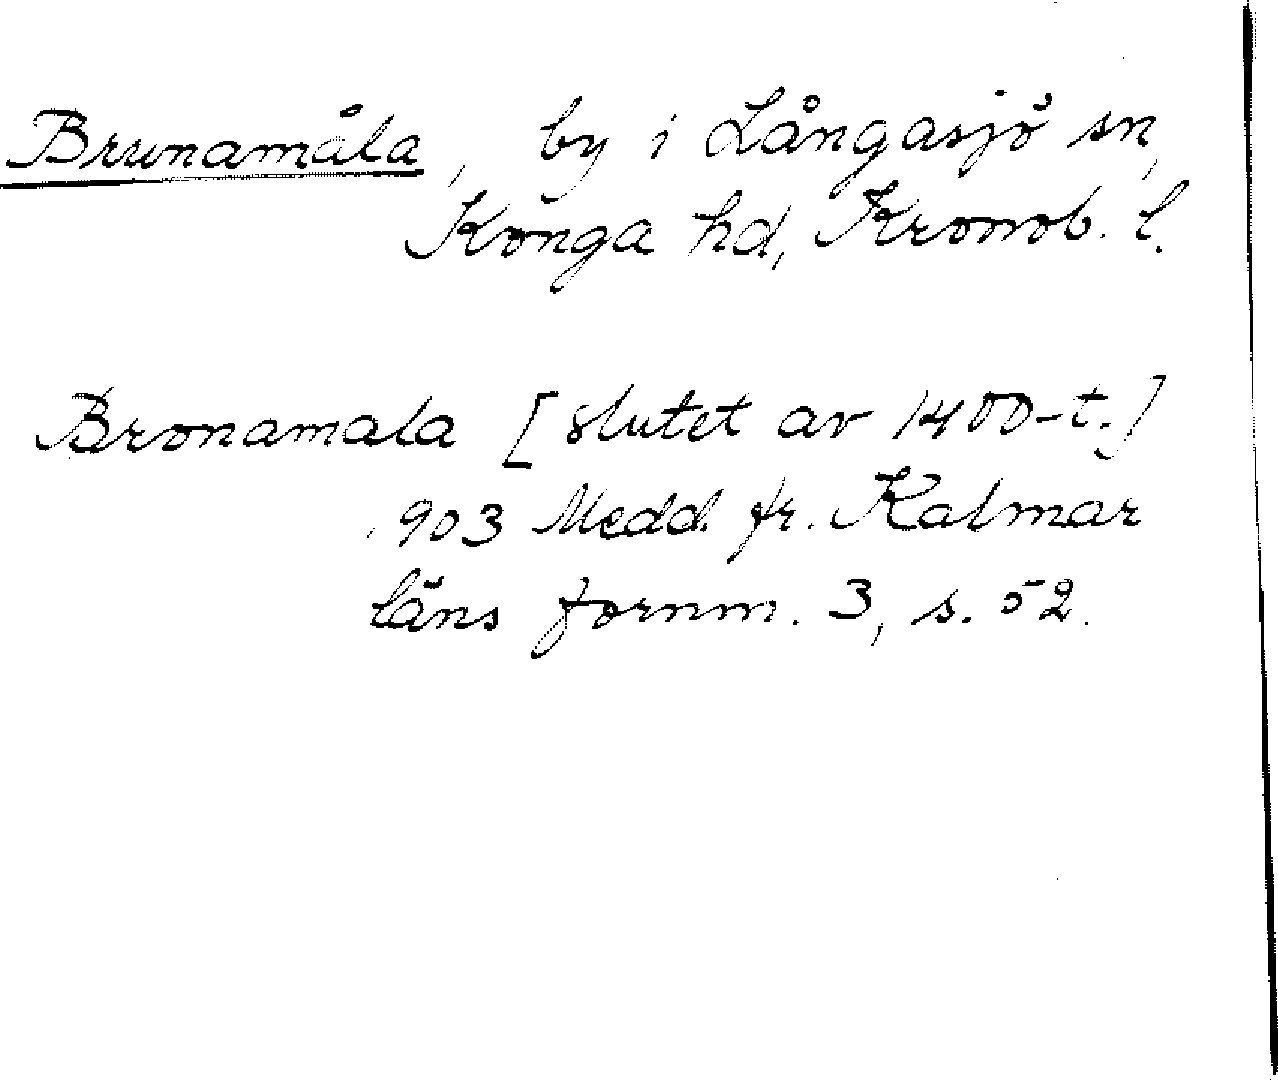 Brunamåla, by i Långasjö sn,
Konga hd, Kronob. l.
Bronamala [slutet av 1400-t.]
1903 Medd. fr. Kalmar
läns fornm. 3, s. 52.